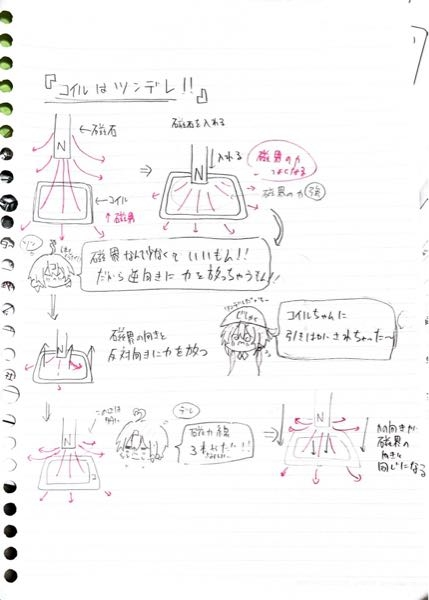 『コイルはツンデレ!!』
←磁石
N
←コイル
↑磁界
⇒
磁石を入れる
入れる
N
磁界の力
つよくなる
磁界の力 強
ツン
磁界なんてなくていいもん!!
だから逆向きに力を放っちゃうもん!!
N
磁界の向きと
反対向きに力を放つ
じしゃく
コイルちゃんに
引きはがされちゃった〜
N
デレ
磁力線
N
力の向きが
磁界の
向きと
同じになる